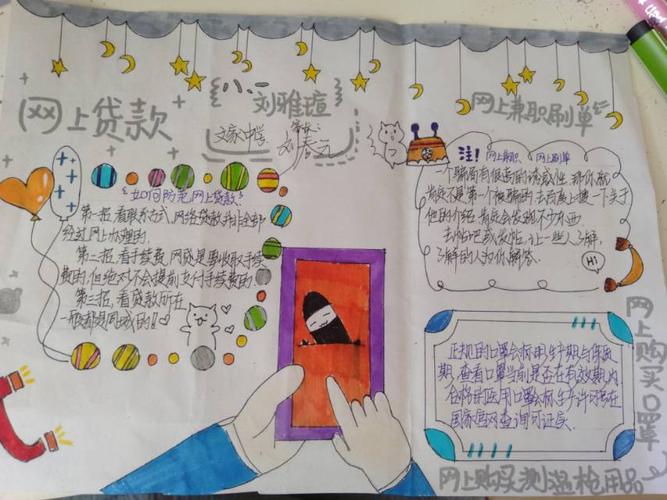 网上贷款
八.二
刘雅瑄
文家中学
网上兼职刷单
"如何防范网上贷款"
第一招,看联系方式,网络贷款并非全部
经过网上办理的.
第二招,看手续费,网贷是要收取手续
费的,但绝对不会提前支付手续费的.
第三招,看贷款所在
一般都是同城的!
注! 网上兼职、网上刷单
一个骗局有很高的诱惑性,那你就
肯定不是第一个被骗的,去百度上搜一下关于
他的介绍,肯定会发现不少东西
去贴吧或发帖,让一些人了解,
了解的人为你解答.
Hi
正规的口罩会标明生产期与保质
期,查看口罩当前是否在有效期内
合格的医用口罩会标生产许可证在
国家官网查询可证实.
网上购买口罩
网上购买测温枪用品